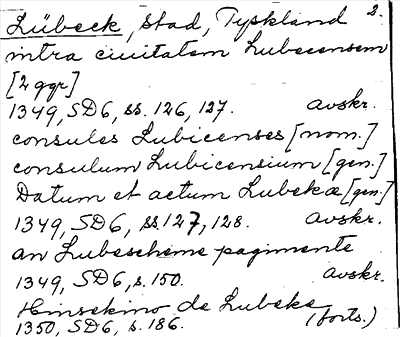 Lübeck, stad, Tyskland 2.
intra ciuitatem Lubecensem
[2 ggr]
1349, SD6, ss. 126, 127. avskr.
consules Lubicenses [nom.]
consulum Lubicensium [gen.]
Datum et actum Lubekæ [gen.]
1349, SD6, ss 127, 128. avskr.
an Lubescheme pagimente
1349, SD6, s. 150. avskr.
Hinsekino de Lubeke
1350, SD6, s. 186. (forts.)